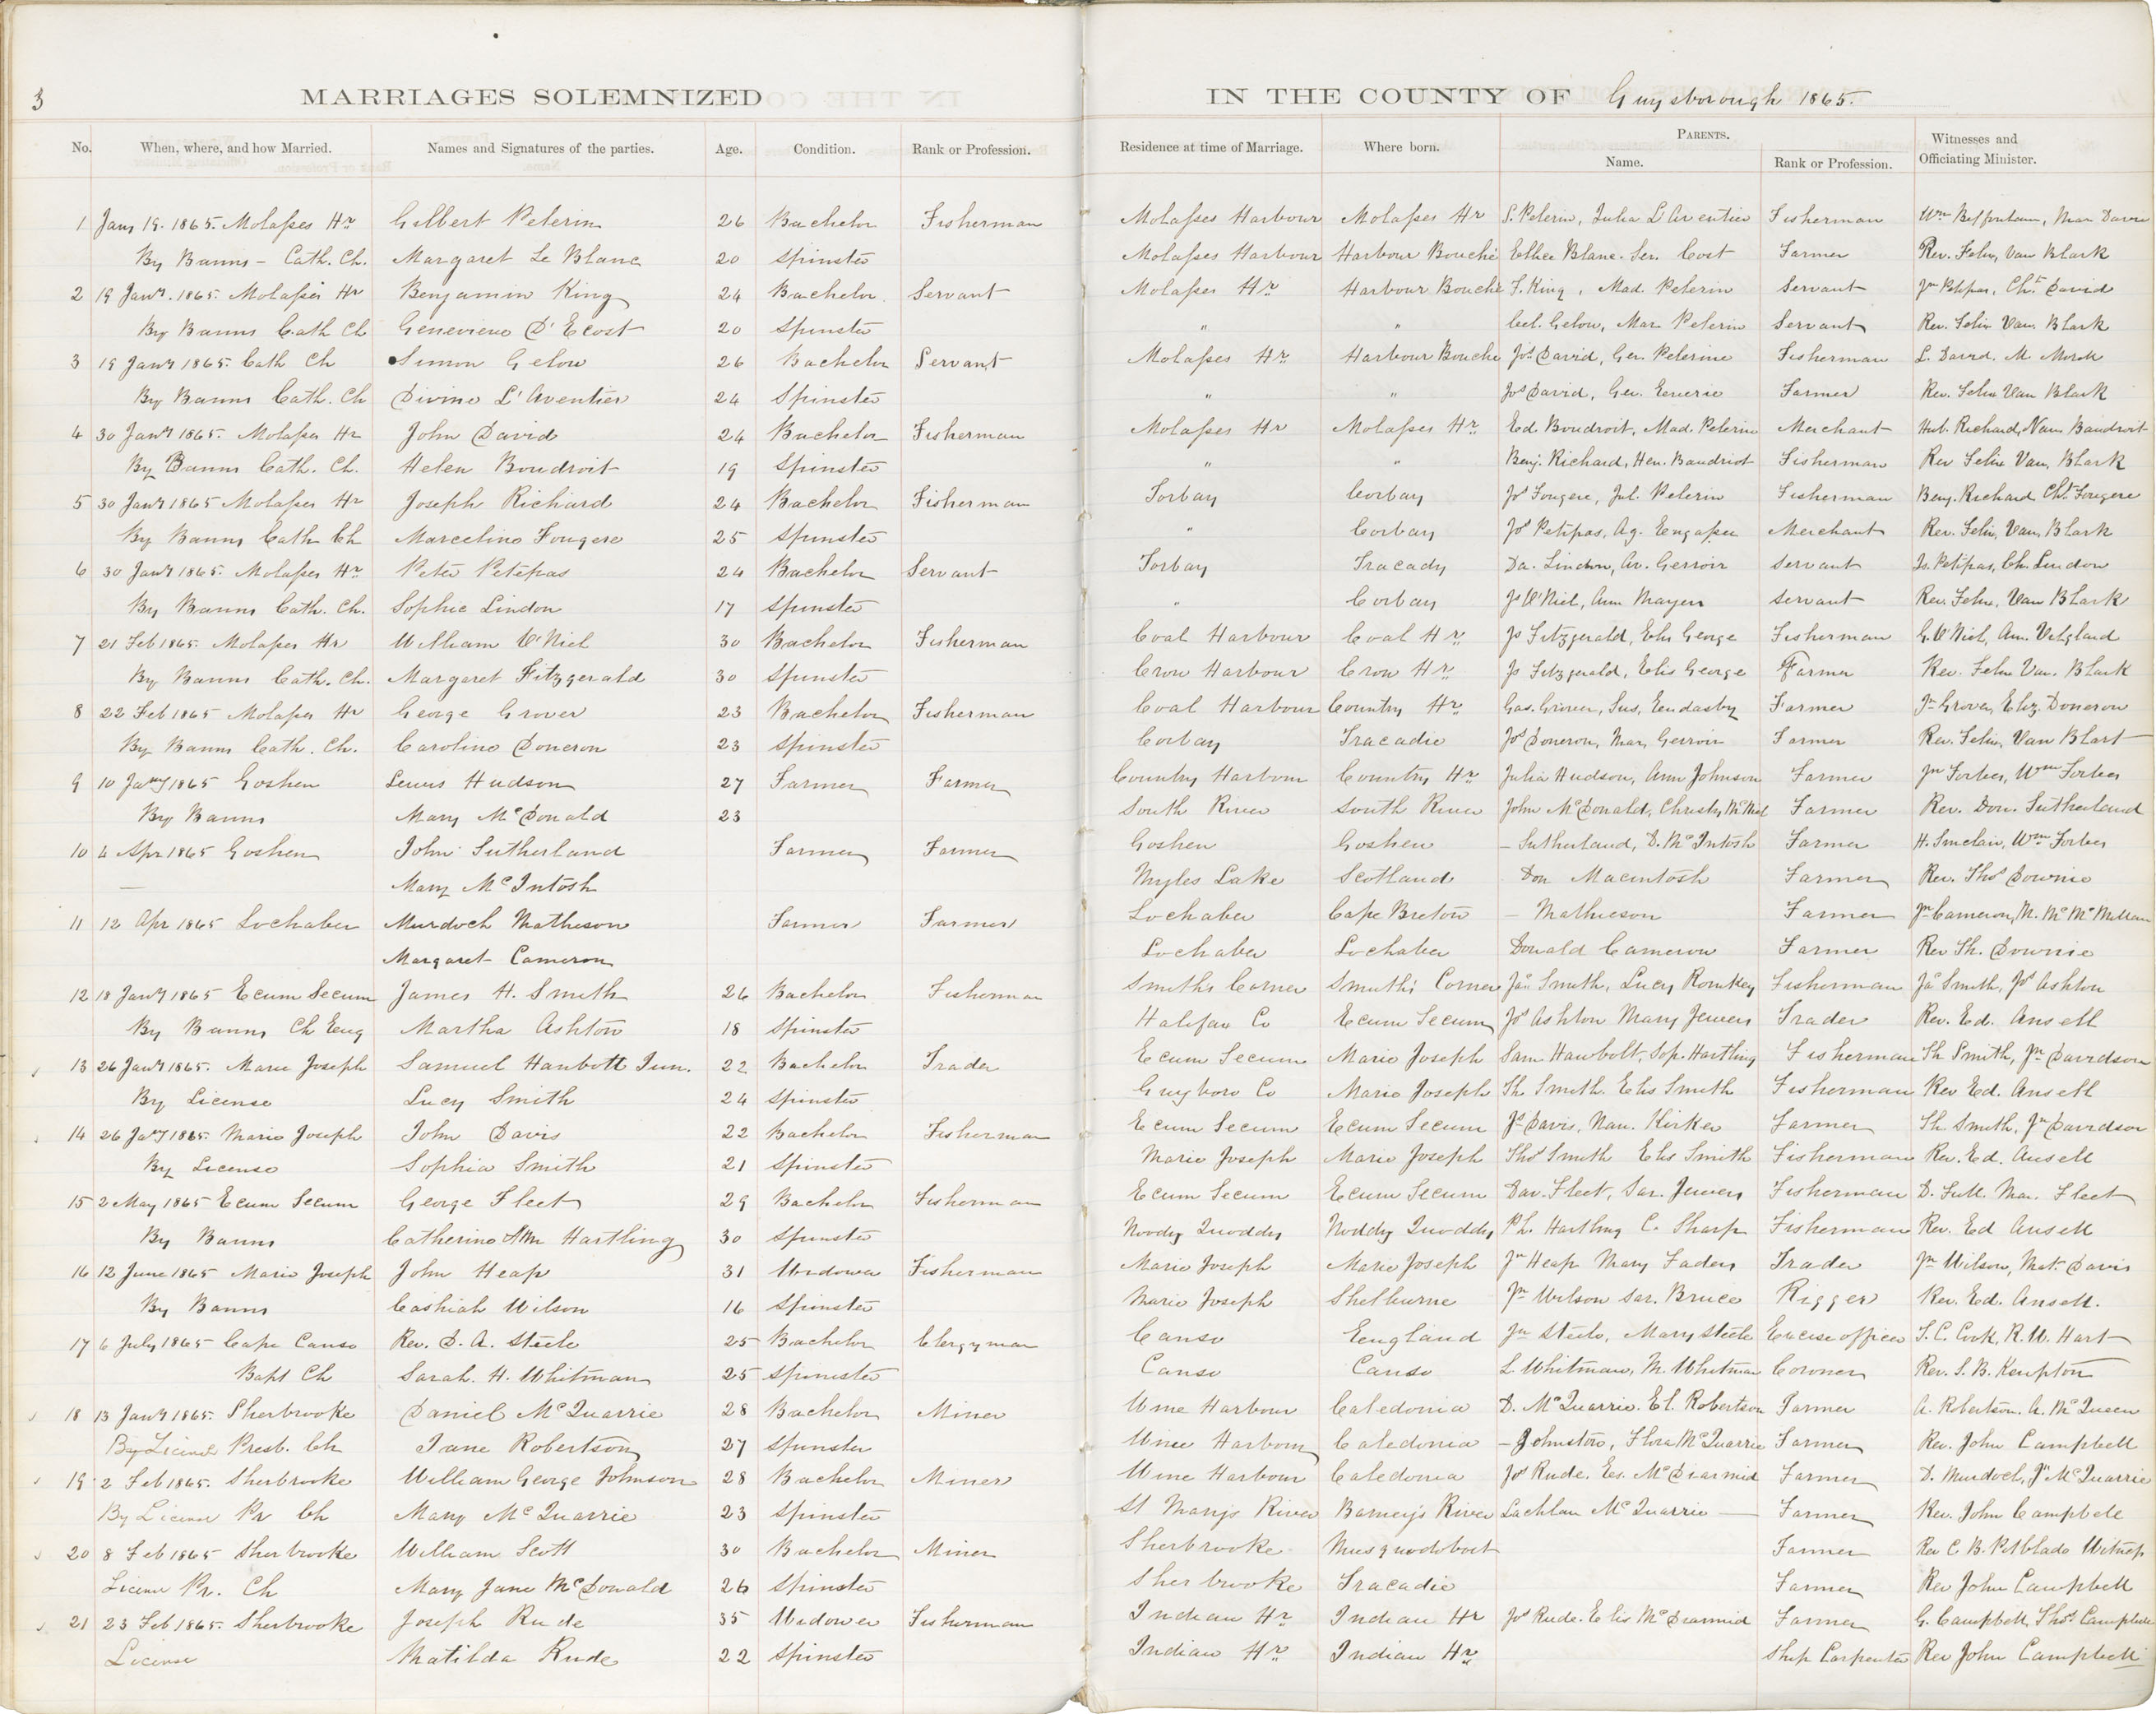 3
MARRIAGES SOLEMNIZED IN THE COUNTY OF Guysborough 1865.
No. When, where, and how Married. Names and Signatures of the parties. Age. Condition. Rank or Profession. Residence at time of Marriage. Where born. PARENTS. Name. Rank or Profession. Witnesses and Officiating Minister.
1 Jany 19. 1865. Molasses Hr Gilbert Pelerin 26 Bachelor Fisherman Molasses Harbour Molasses Hr S. Pelerin, Julia L'Arventier Fisherman Wm
By Banns - Cath. Ch. Margaret Le Blanc 20 Spinster Molasses Harbour Harbour Bouché Blanc. Ser. Cost Farmer Rev. Felix Van Blark
2 19 Jany. 1865. Molasses Hr Benjamin King 24 Bachelor Servant Molasses Hr Harbour Bouche S. King, Mad. Pelerin Servant Jn Petipas, Cht David
By Banns Cath Ch Genevieve D'Ecost 20 Spinster " " Cel. Gelou, Mar. Pelerin Servant Rev. Felix Van. Blark
3 19 Jany 1865. Cath Ch Simon Gelou 26 Bachelor Servant Molasses Hr Harbour Bouche Jos David, Gen. Pelerine Fisherman L. David. M
By Banns Cath. Ch Divine L'Aventier 24 Spinster " " Jos David, Gen. Farmer Rev. Felix Van Blark
4 30 Jany 1865. Molasses Hr John David 24 Bachelor Fisherman Molasses Hr Molasses Hr Ed. Boudroit, Mad. Pelerin Merchant Hub. Richard, Nan Baudroit
By Banns Cath. Ch. Helen Boudroit 19 Spinster " " Benj. Richard, Hen. Baudriot Fisherman Rev Felix Van. Blark
5 30 Jany 1865 Molasses Hr Joseph Richard 24 Bachelor Fisherman Torbay Corbay Jos Fougere, Jul. Pelerin Fisherman Benj. Richard Cht Fougere
By Banns Cath Ch Marceline Fougere 25 Spinster " Corbay Jos Petipas, Ag. Merchant Rev. Felix, Van, Blark
6 30 Jany 1865. Molasses Hr Peter Petepas 24 Bachelor Servant Torbay Tracady Da. Lindon, Av. Gerroir Servant Js. Petipas, Ch. Lindon
By Banns Cath. Ch. Sophie Lindon 17 Spinster " Corbay Js O'Niel, Ann Mayen Servant Rev. Felix, Van Blark
7 21 Feb 1865. Molasses Hr William O'Niel 30 Bachelor Fisherman Coal Harbour Coal Hr Js Fitzgerald, Elis George Fisherman G. O'Niel, An.
By Banns Cath. Ch. Margaret Fitzgerald 30 Spinster Crow Harbour Crow Hr Js Fitzgerald, Elis George Farmer Rev. Felix Van. Blark
8 22 Feb 1865 Molasses Hr George Grover 23 Bachelor Fisherman Coal Harbour Country Hr Gas. Grover, Sus. Farmer Jn Grover, Eliz. Doneron
By Banns Cath. Ch. Caroline Doneron 23 Spinster Corbay Tracadie Jos Doneron, Mar. Gerroir Farmer Rev. Felix, Van Blart
9 10 Jany 1865 Goshen Lewis Hudson 27 Farmer Farmer Country Harbour Country Hr Julia Hudson, Ann Johnson Farmer Jn Forbes, Wm Forbes
By Banns Mary McDonald 23 South River South River John McDonald, Christy McNiel Farmer Rev. Don. Sutherland
10 4 Apr 1865 Goshen John Sutherland Farmer Farmer Goshen Goshen - Sutherland, D. McIntosh Farmer H. Sinclair, Wm Forbes
— Mary McIntosh Myles Lake Scotland Don Macintosh Farmer Rev. Thos Downie
11 12 Apr 1865 Lochaber Murdoch Matheson Farmer Farmer Lochaber Cape Breton - Mathieson Farmer Jn Cameron, M. Mc McMillan
Margaret Cameron Lochaber Lochaber Donald Cameron Farmer Rev Th. Downie
12 18 Jany 1865 Ecum Secum James H. Smith 26 Bachelor Fisherman Smiths Corner Smith's Corner Jas Smith, Lucy Romkey Fisherman Jas Smith, Js Ashton
By Banns Ch Eng Martha Ashton 18 Spinster Halifax Co Ecum Secum Js Ashton Mary Jewers Trader Rev. Ed. Ansell
13 26 Jany 1865. Marie Joseph Samuel Hanbolt Jun. 22 Bachelor Trader Ecum Secum Marie Joseph Sam Hawbolt, Sop. Hartling Fisherman Th Smith, Jn Davidson
By License Lucy Smith 24 Spinster Guysboro Co Marie Joseph Th Smith. Elis Smith Fisherman Rev Ed. Ansell
14 26 Jany 1865. Marie Joseph John Davis 22 Bachelor Fisherman Ecum Secum Ecum Secum Js Davis, Nan. Kirker Farmer Th. Smith, Jn Davidson
By License Sophia Smith 21 Spinster Marie Joseph Marie Joseph Thos Smith Elis Smith Fisherman Rev. Ed. Ansell
15 2 May 1865 Ecum Secum George Fleet 29 Bachelor Fisherman Ecum Secum Ecum Secum Dav. Fleet, Sar. Jewers Fisherman D. Mar. Fleet
By Banns Catherine Ann Hartling 30 Spinster Noody Quoddy Noddy Quoddy Ph. Hartling C. Sharp Fisherman Rev. Ed Ansell
16 12 June 1865 Marie Joseph John Heap 31 Widower Fisherman Marie Joseph Marie Joseph Jn Heap Mary Faders Trader Jn Wilson, Mat. Davis
By Banns Cashiah Wilson 16 Spinster Marie Joseph Shelburne Jn Wilson Sar. Bruce Rigger Rev. Ed. Ansell.
17 6 July 1865 Cape Canso Rev. D. A. Steele 25 Bachelor Clergyman Canso England Jn Steele, Mary Steele Excise officer T. C. Cook, R. W. Hart
Bapt Ch Sarah. H. Whitman 25 Spinister Canso Canso L. Whitman, M. Whitman Coroner Rev. S. B. Kempton
18 13 Jany 1865. Sherbrooke Daniel McQuarrie 28 Bachelor Miner Wine Harbour Caledonia D. McQuarrie. El. Robertson Farmer A. Robertson. A. McQueen
By License Presb. Ch Jane Robertson 27 Spinster Wine Harbour Caledonia - Johnston, Flora McQuarrie Farmer Rev. John Campbell
19 2 Feb 1865. Sherbrooke William George Johnson 28 Bachelor Miner Wine Harbour Caledonia Jos Rude. Es. McDiarmid Farmer D. Murdoch, Jn McQuarrie
By License Pr Ch Mary McQuarrie 23 Spinster St Mary's River Barney's River Lachlan McQuarrie — Farmer Rev. John Campbell
20 8 Feb 1865 Sherbrooke William Scott 30 Bachelor Miner Sherbrooke Musquodoboit Farmer Rev C. B. Pitblado Witness
License Pr. Ch Mary Jane McDonald 26 Spinster Sherbrooke Tracadie Farmer Rev John Campbell
21 23 Feb 1865. Sherbrooke Joseph Rude 35 Widower Fisherman Indian Hr Indian Hr Jos Rude. Elis McDiarmid Farmer G. Campbell, Thos Campbell
License Matilda Rude 22 Spinster Indian Hr Indian Hr Ship Carpenter Rev John Campbell